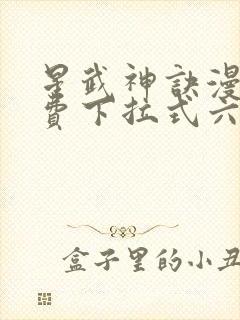 星武神訣漫
費下拉式六
盒子里的小丑